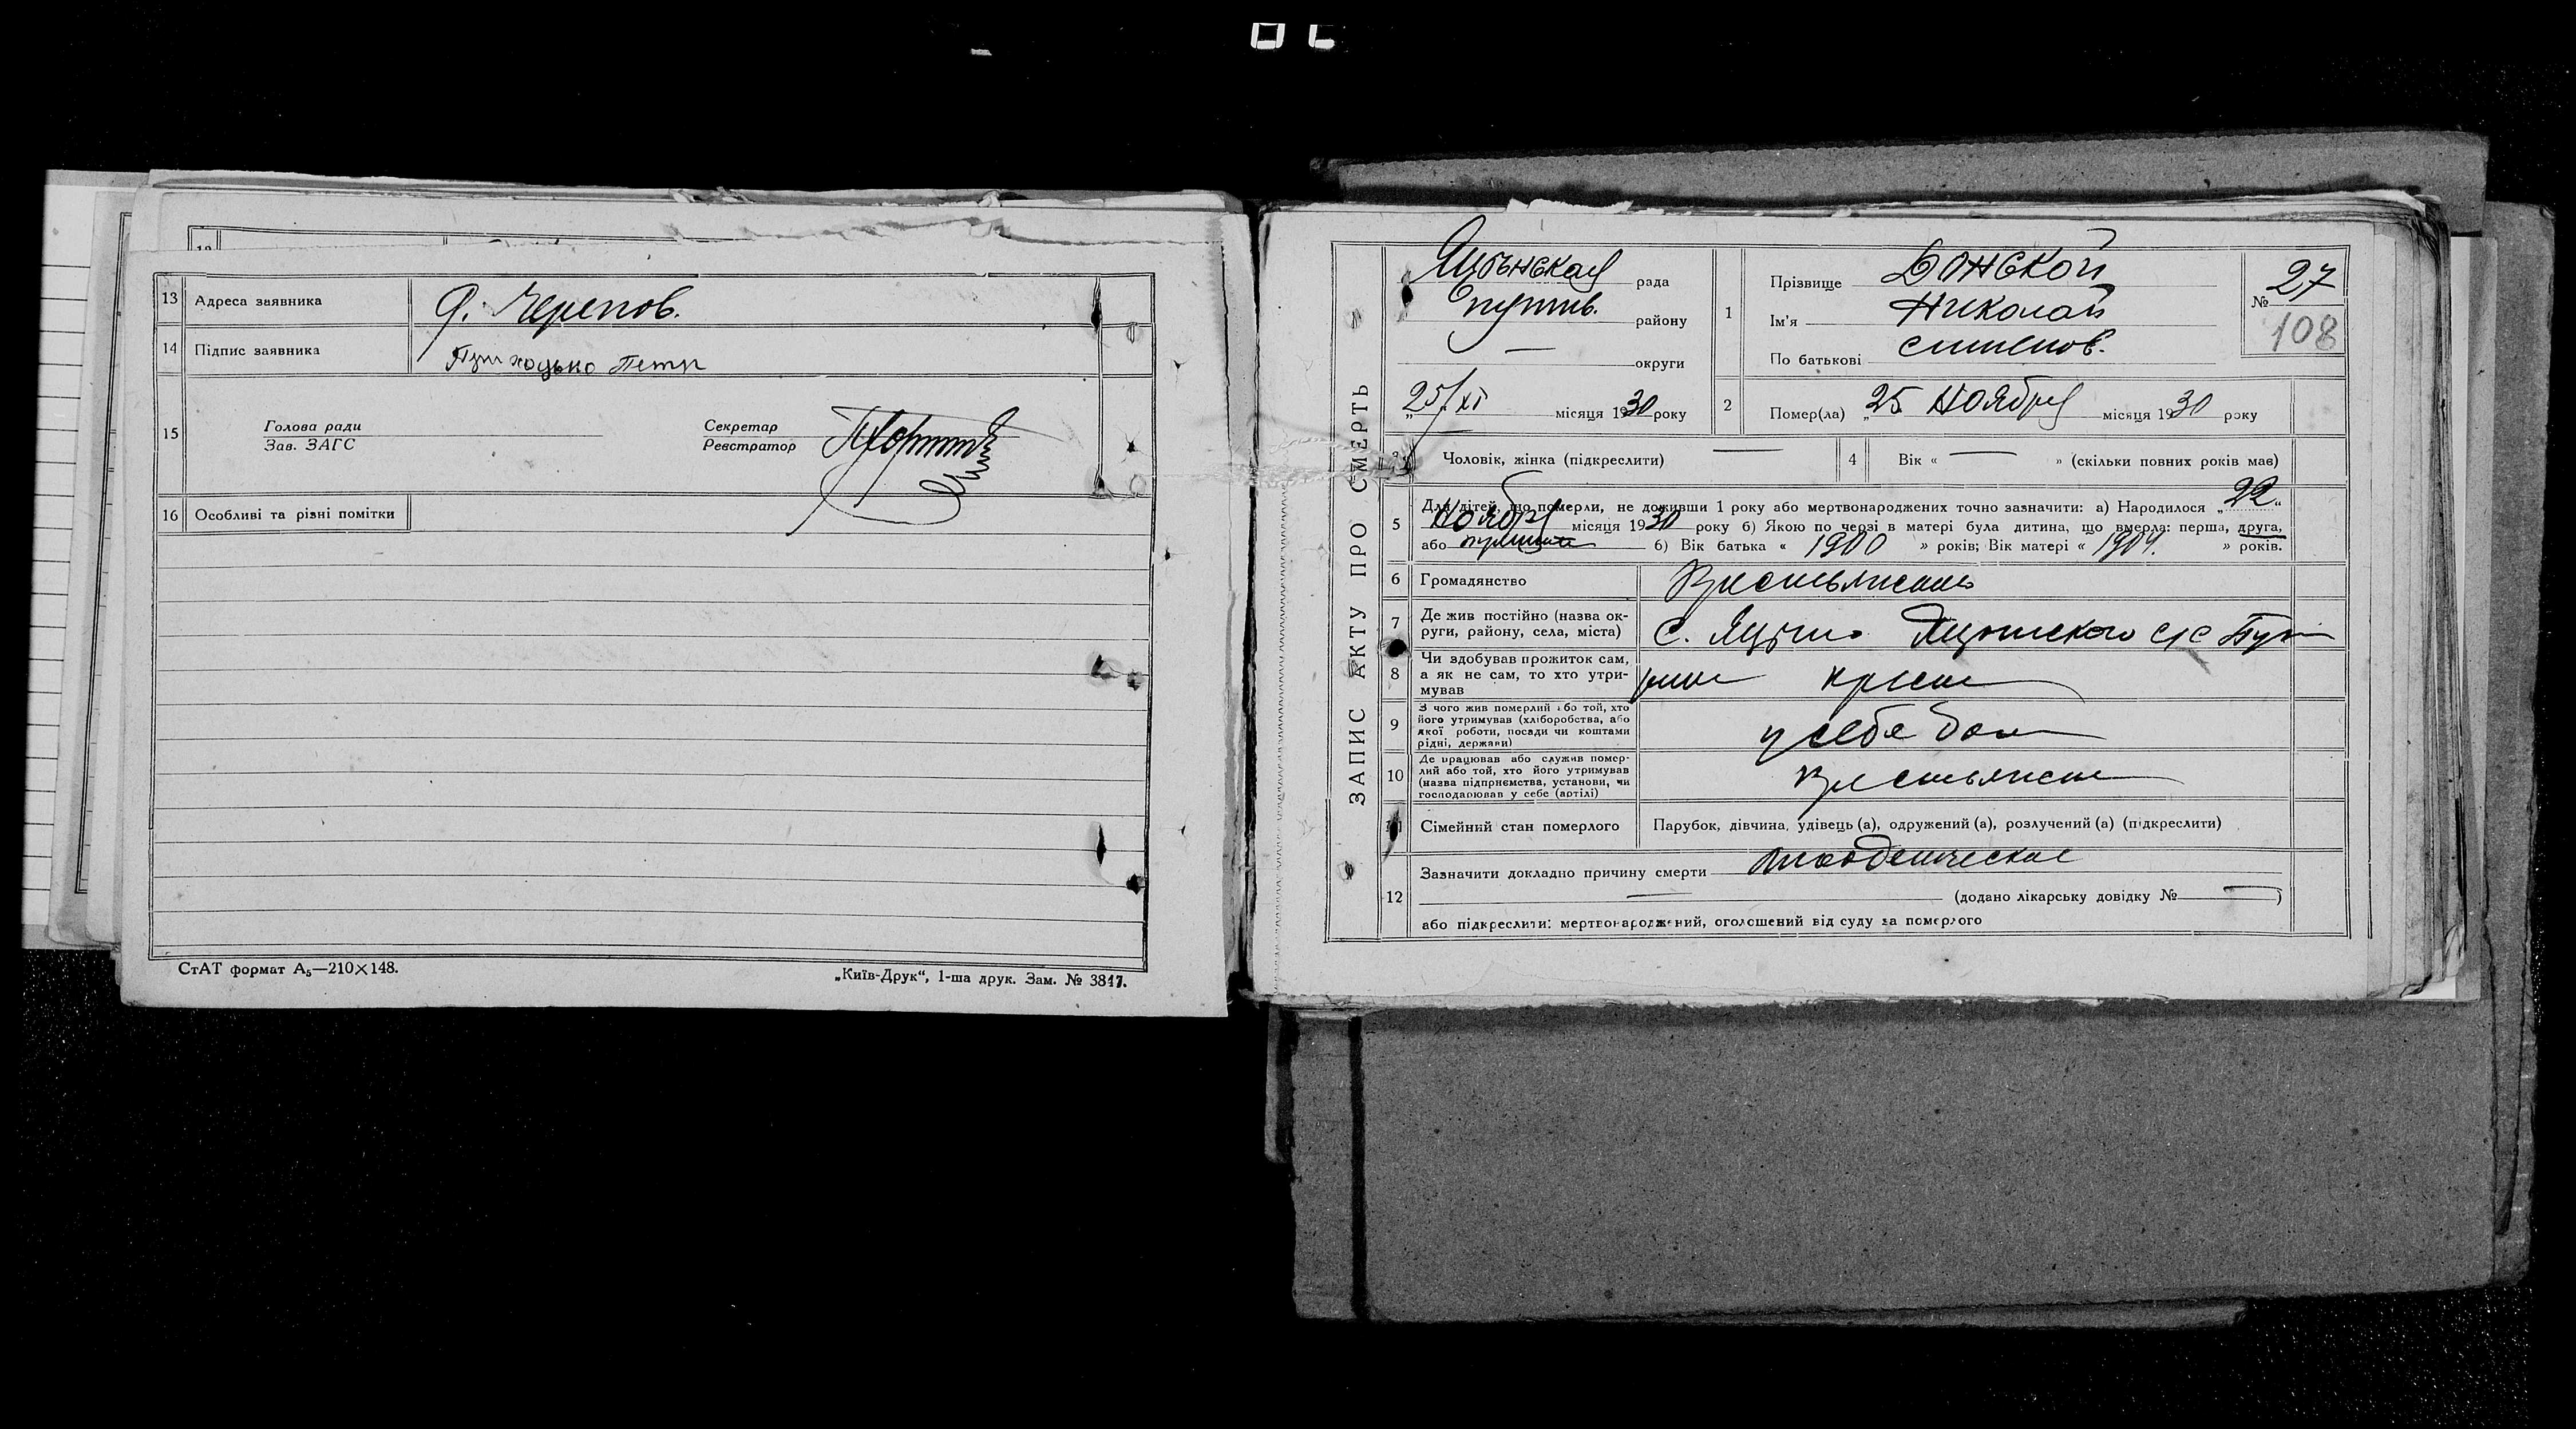 13 Адреса заявника Ф. Черепов.
14 Підпис заявника Приходько Петр
15 Голова ради
Зав. ЗАГС
Секретар
Реєстратор
16 Особливі та різні помітки
СтАТ формат А5—210×148.
„Київ-Друк“, 1-ша друк. Зам. № 3847.
ЗАПИС АКТУ ПРО СМЕРТЬ
рада
Путив. району
— округи
„25/XI місяця 1930 року
1 Прізвище Донской
Ім'я Николай
По батькові
№ 27
108
2 Помер(ла) „25 Ноября місяця 1930 року
3 Чоловік, жінка (підкреслити) —
4 Вік « — » (скільки повних років мав)
5 Для дітей, що померли, не доживши 1 року або мертвонароджених точно зазначити: а) Народилося „22“
Ноября місяця 1930 року б) Якою по черзі в матері була дитина, що вмерла: перша, друга,
або 6) Вік батька « 1900 » років; Вік матері « 1904. » років.
6 Громадянство
7 Де жив постійно (назва ок-
руги, району, села, міста) с. Яцыно с/с
8 Чи здобував прожиток сам,
а як не сам, то хто утри-
мував
9 З чого жив померлий або той, хто
його утримував (хліборобства, або
якої роботи, посади чи коштами
рідні, держави) у себе дома
10 Де працював або служив помер-
лий або той, хто його утримував
(назва підприємства, установи, чи
господарював у себе (артілі)
11 Сімейний стан померлого Парубок, дівчина, удівець (а), одружений (а), розлучений (а) (підкреслити)
12 Зазначити докладно причину смерти младенческая
— (додано лікарську довідку № — )
або підкреслити: мертвонароджений, оголошений від суду за померлого